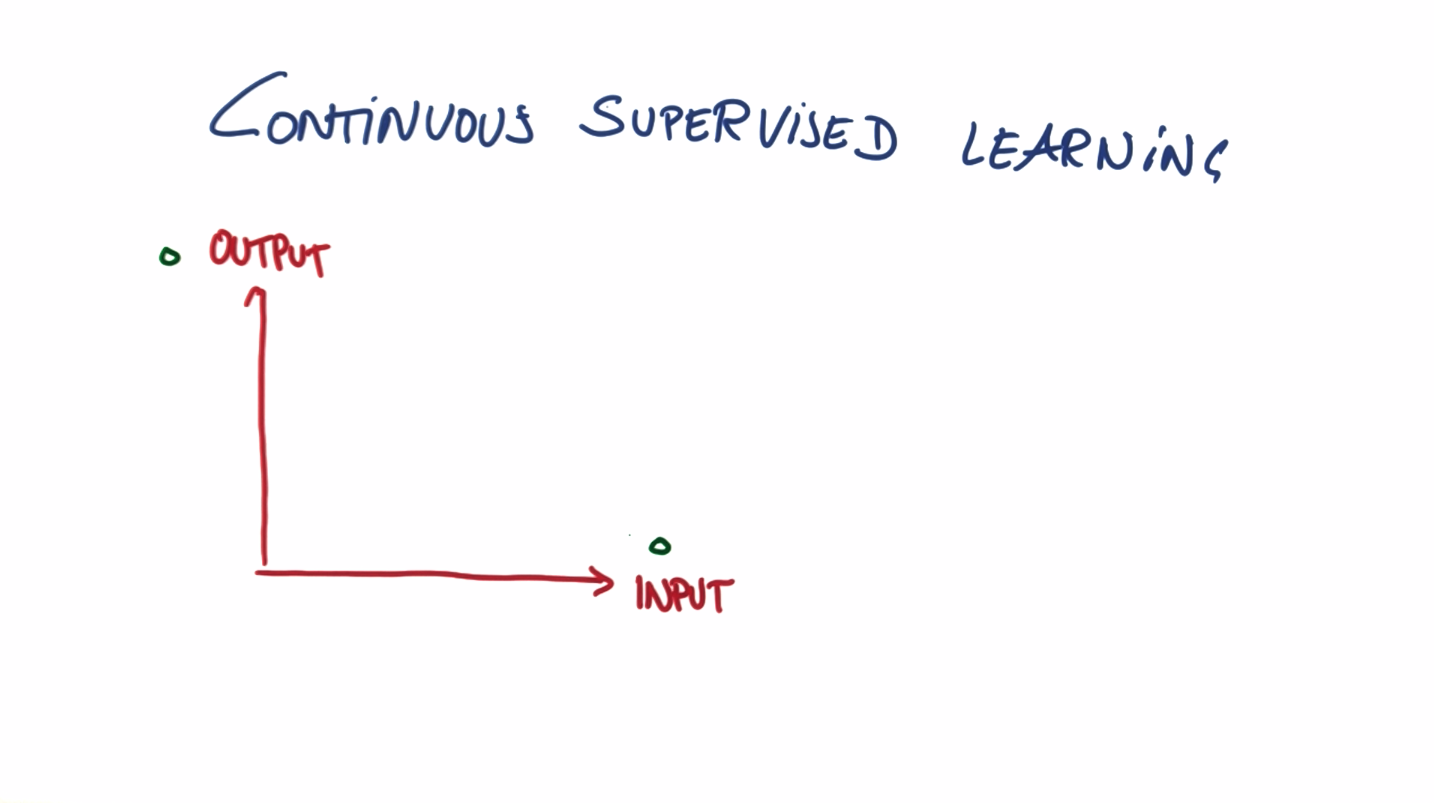 CONTiNUOUS SUPERViSED LEARNiNG
OUTPUT
INPUT